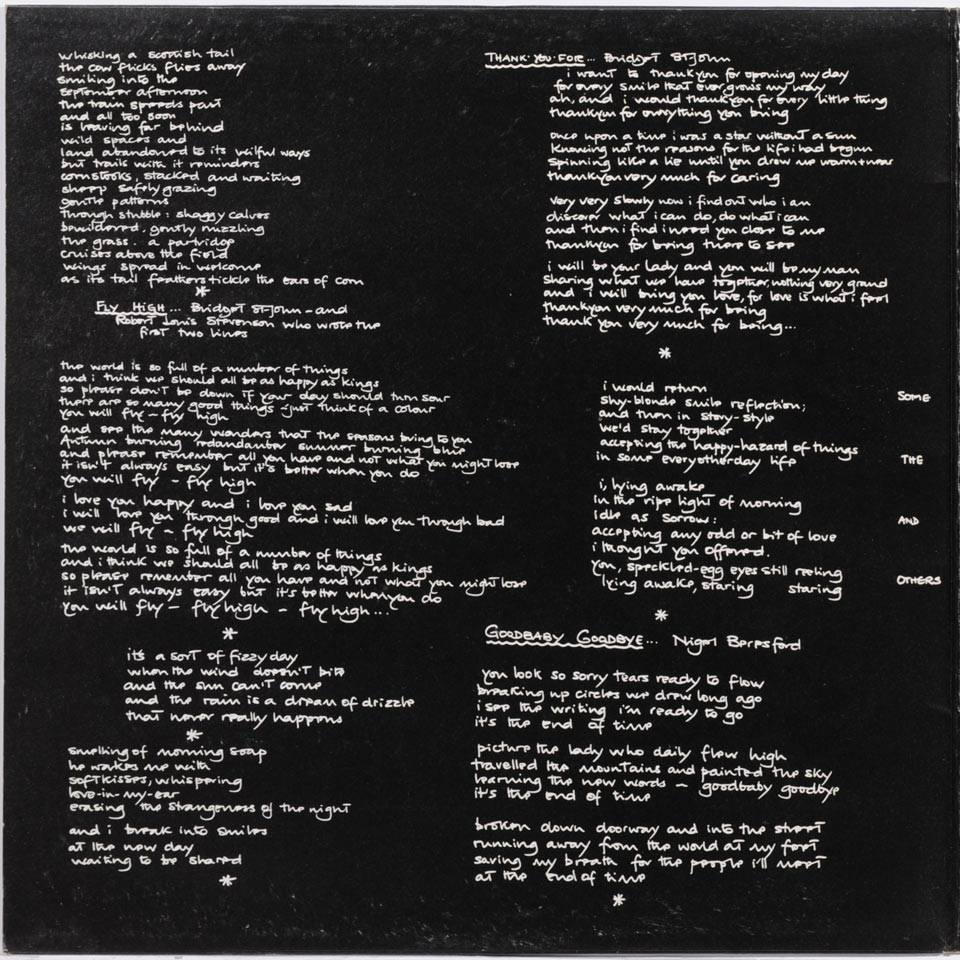 whisking a scottish tail
the cow flicks flies away
smiling into the
September afternoon
the train speeds past
and all too soon
is leaving far behind
wild spaces and
land abandoned to its wilful ways
but trails with it reminders
cornstooks, stacked and waiting
sheep safely grazing
gentle patterns
through stubble: shaggy calves
bewildered, gently nuzzling
the grass. a partridge
cruises above the field
wings spread in welcome
as its tail feathers tickle the ears of corn
*
FLY HIGH... Bridget St John - and
Robert Louis Stevenson who wrote the
first two lines
the world is so full of a number of things
and i think we should all be as happy as kings
so please don't be down if your day should turn sour
there are so many good things just think of a colour
you will fly - fly high
and see the many wonders that the seasons bring to you
Autumn burning redandamber summer burning blue
and please remember all you have and not what you might lose
it isn't always easy but it's better when you do
you will fly - fly high
i love you happy and i love you sad
i will love you through good and i will love you through bad
we will fly - fly high
the world is so full of a number of things
and i think we should all be as happy as kings
so please remember all you have and not what you might lose
it isn't always easy but it's better when you do
you will fly - fly high - fly high...
*
it's a sort of fizzy day
when the wind doesn't bite
and the sun can't come
and the rain is a dream of drizzle
that never really happens
*
smelling of morning soap
he wakes me with
softkisses, whispering
love-in-my-ear
erasing the strangeness of the night
and i break into smiles
at the new day
waiting to be shared
*
THANK·YOU·FOR... Bridget St John
i want to thankyou for opening my day
for every smile that ever grows my way
ah, and i would thankyou for every little thing
thankyou for everything you bring
once upon a time i was a star without a sun
knowing not the reasons for the life i had begun
spinning like a lie until you drew me warm+near
thankyou very much for caring
very very slowly now i find out who i am
discover what i can do, do what i can
and then i find i need you close to me
thankyou for being there to see
i will be your lady and you will be my man
sharing what we have together, nothing very grand
and i will bring you love, for love is what i feel
thankyou very much for being
thank you very much for being...
*
i would return
shy-blonde smile reflection;
and then in story-style
we'd stay together
accepting the happy-hazard of things
in some everyotherday life
i, lying awake
in the ripe light of morning
idle as sorrow:
accepting any odd or bit of love
i thought you offered.
You, speckled-egg eyes still reeling
lying awake, staring staring
*
SOME
THE
AND
OTHERS
GOODBABY GOODBYE... Nigel Beresford
you look so sorry tears ready to flow
breaking up circles we drew long ago
i see the writing i'm ready to go
it's the end of time
picture the lady who daily flew high
travelled the mountains and painted the sky
learning the new words - goodbaby goodbye
it's the end of time
broken down doorway and into the street
running away from the world at my feet
saving my breath for the people i'll meet
at the end of time
*